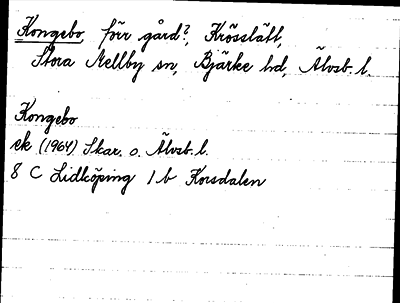 Kongebo, förr gård?, Krösslätt,
Stora Mellby sn, Bjärke hd, Älvsb. l.
Kongebo
ek (1964) Skar. o. Älvsb. l.
8 C Lidköping 1 b Korsdalen